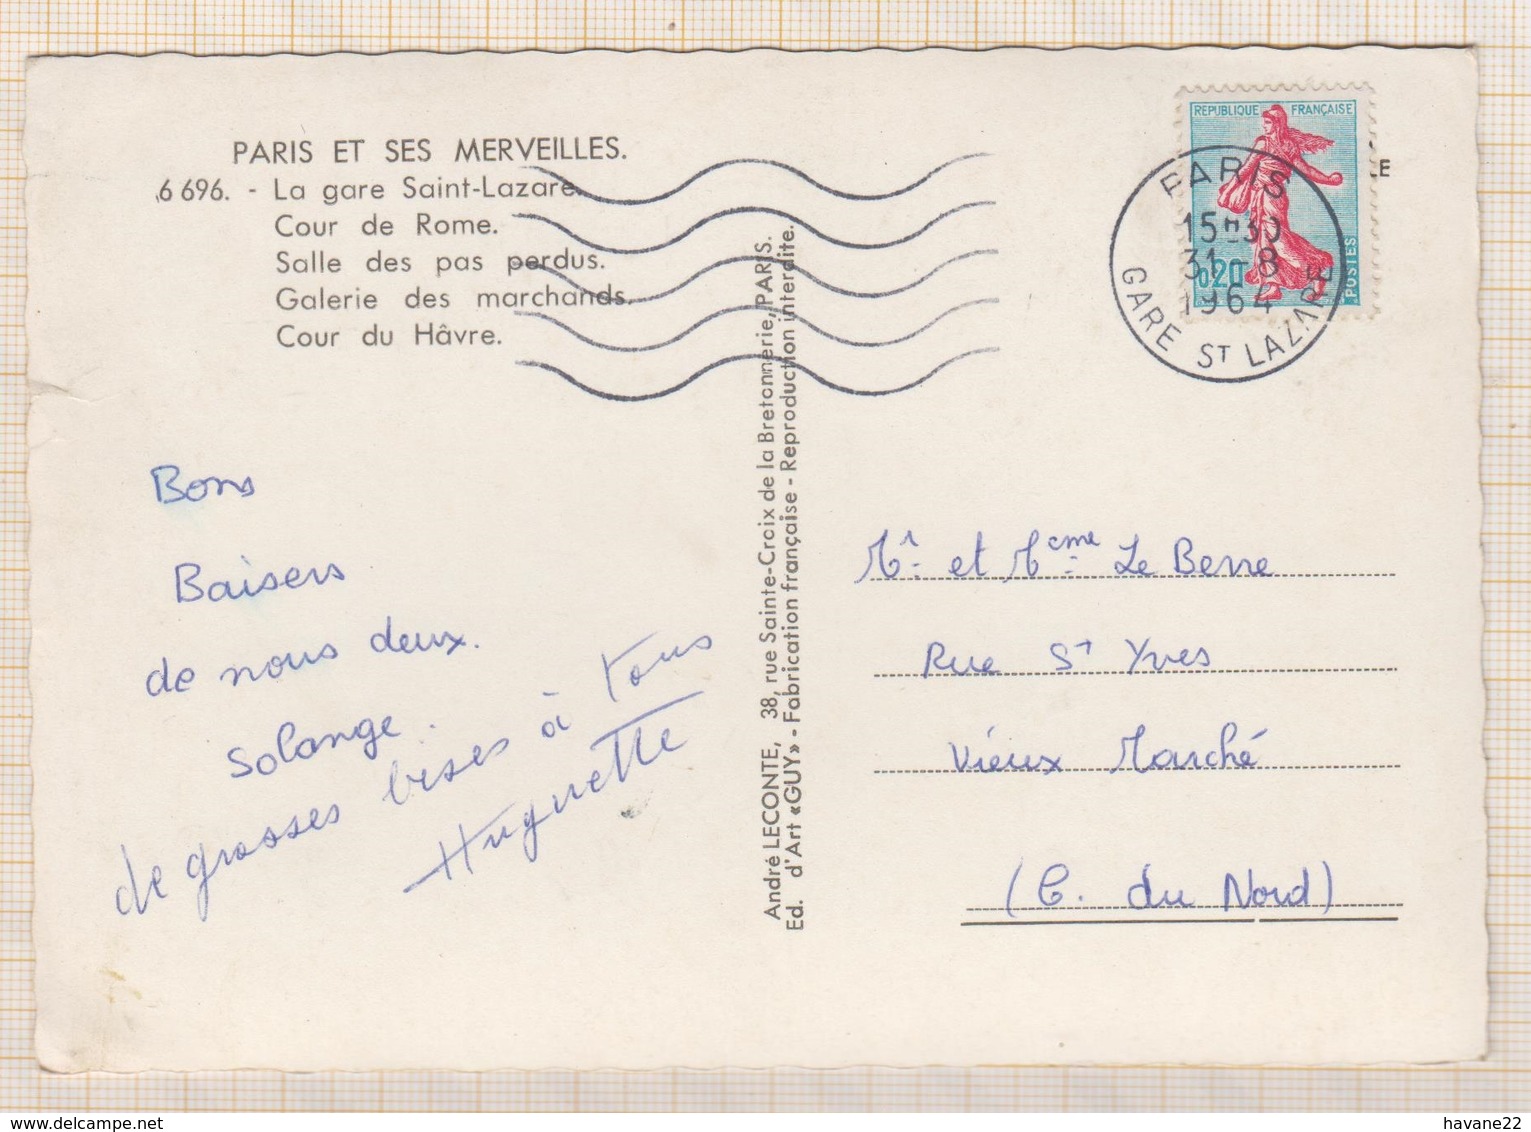 PARIS ET SES MERVEILLES.
6 696. - La gare Saint-Lazare.
Cour de Rome.
Salle des pas perdus.
Galerie des marchands.
Cour du Hâvre.
REPUBLIQUE FRANÇAISE
0,20
POSTES
LE
PARIS
15H30
31-8
1964
GARE ST LAZARE
Bons
Baisers
de nous deux.
Solange.
de grosses bises à tous
Huguette
André LECONTE, 38, rue Sainte-Croix de la Bretonnerie, PARIS.
Ed. d'Art «GUY» - Fabrication française - Reproduction interdite.
Mr et Mme Le Berre
Rue St Yves
Vieux Marché
(C. du Nord)
havane22